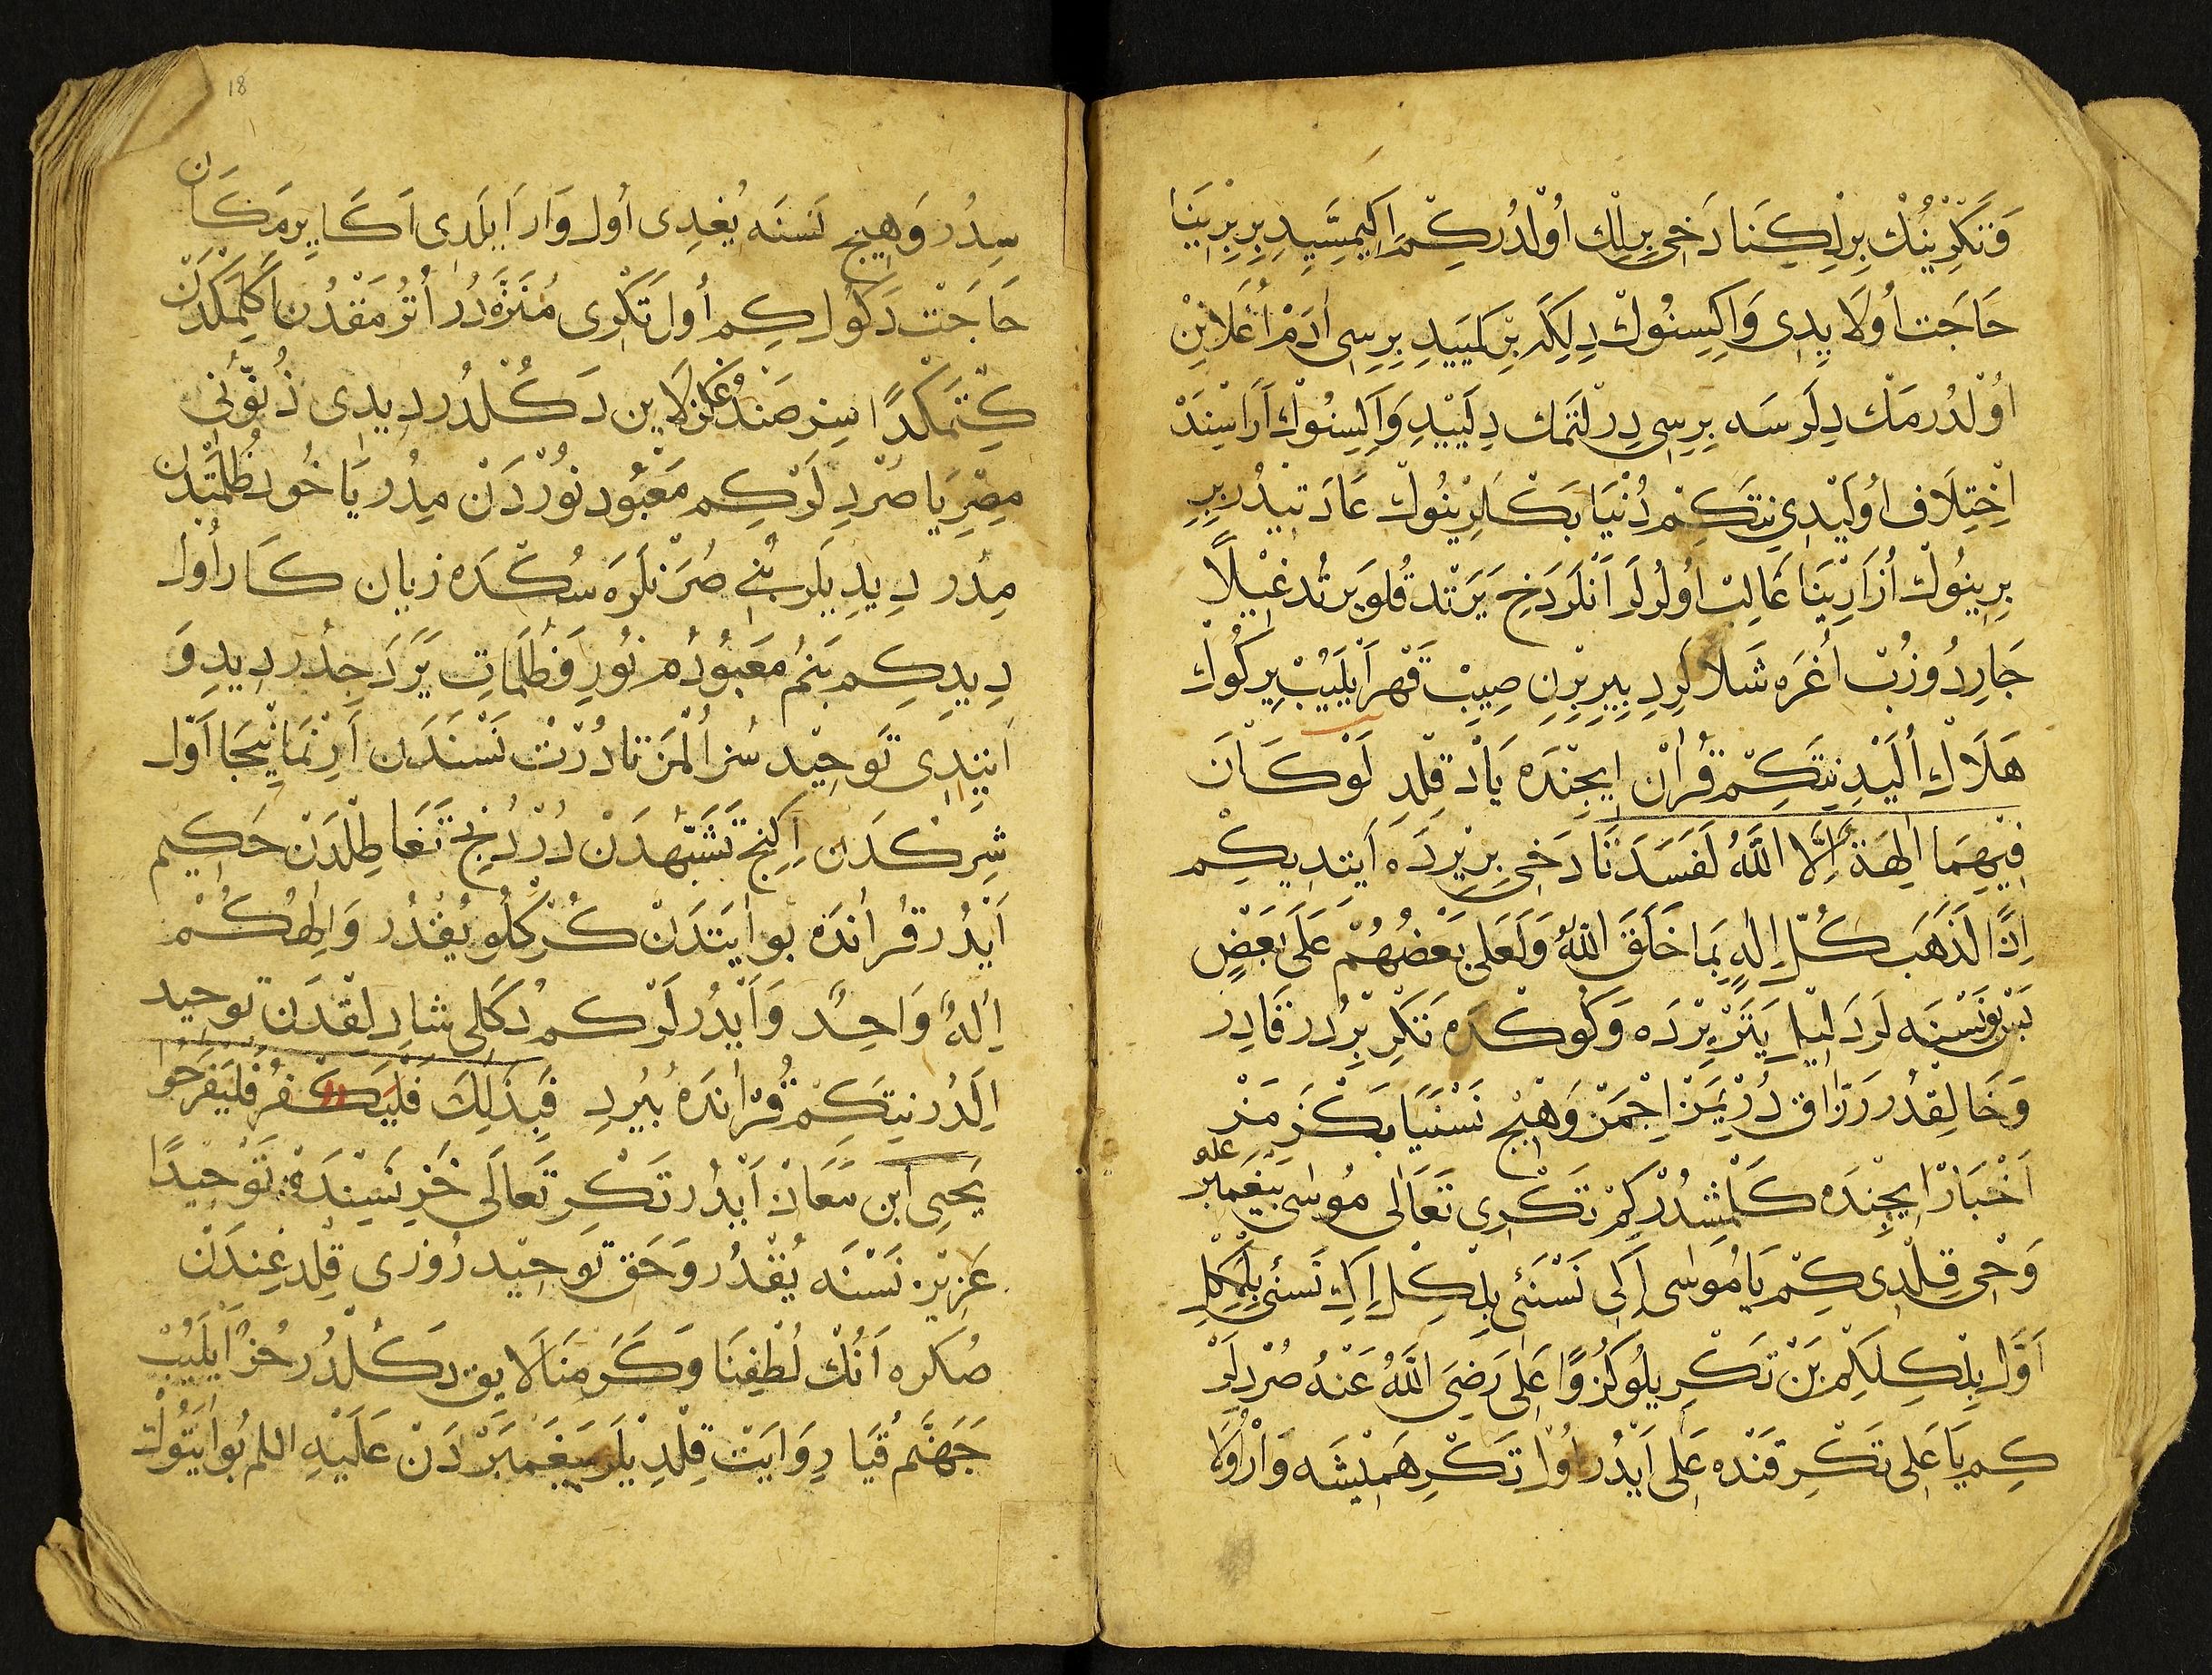 وَتَنْكْرِينُكْ بِرْلِكِنَا دَخِى بِرْلِكْ اُوْلْدُرْكِمْ اَكِيمِسَيِدِ بِرِ بِرِينَا
حَاجَت اُولَايِدِى وَاِكِيسِنُوكْ دِلَكِ بِرْ كَلمَيَيدِ بِرِسِى اٰدَمْ اُغْلَانِنْ
اُوْلْدُرمَكْ دِلَرسَه بِرِسِى دِرْلتمَك دِلَيَيْدِ وَاِكِيسِنُوكْ اَرَاسِنْدَ
اِخْتِلَاف اُولَيْدِى نِتَكِمْ دُنْيَا بَكْلَرِينُوكْ عَادَتيدُر بِرِ
بِرِينُوكْ اُزَارِنَا غَالِبْ اُولُرلَر اَنْلَر دَخِى يَرَتْد قُلوَ يَرتُد غيلًا
جَارِ دُوزُبْ اُغَرَه شَلالَرِدِ بِيرِبِرْنِ صِيبْ قَهْر اَيْلَيُبْ بِركُوكْ
هَلَاكْ اُلَيْدِ نِيتَكِمْ قُرْاٰن اِيجِنْدَه يَادْ قِلْدِ لَوْكَانَ
فِيْهِمَا اٰلِهَةٌ اِلَّا اللّٰهُ لَفَسَدَتَا دَخِى بِرْ يِردَه اَيتدِيكِم
اِذًا لَذَهَبَ كُلُّ اِلٰهٍ بِمَا خَلَقَ اللّٰهُ وَلَعَلٰى بَعْضُهُمْ عَلٰى بَعْضٍ
بَس بُو نَسْنَه لَر دَلِيلِ يَتَرْ يِرْدَه وَكُوكْدَه تَنكْرِ بِرْدُر قَادِر
وَخَالِقِدُر رَزَّاق دُر يَمَزْ اِجْمَزْ وَهِيْج نَسْنَيَا بَكْزَمَزْ
اَخْبَارْ اِيجِنْدَه كَلْمِشْدُرْ كِمْ تَكْرِى تَعَالٰى مُوسٰى بيَغَمبَر عله
وَحْى قِلْدِى كِمْ يَا مُوسٰى اِكِى نَسْنَئِ بِلْكِلْ اِكِى نَسنئِى بِلمكِلِ
اَوَّل بِلْكِلكِمْ بَنْ تَكْرِيلُوكُزوًا عَلِى رَضِىَ اللّٰهُ عَنْهُ صُرْدِلَرْ
كِم يَا عَلِى تَكْرِ قَنْدَه عَلِى اَيْدُر اُوْل تَكْرِ هَمِيْشَه وَارْاُولَا
18
سِدُر وَهِيج نَسنَه يُغِدِى اُول وَار اَيلَدِى اَكَا يِر مَكَان
حَاجَتْ دَكُول كِم اُول تَكْرِى مُنَزَّهدُر اُتُرمَقْدُن كَلِمَكْدَن
كِتمَكْدَ اسز صَنْدُغكُز لَايِن دَكُلْدُر دِيدِى ذُنّونِى
مِصْرِيَا صُرْدِلَرْكِم مَعْبُود نُورْدَنْ مِدُر يَا خُود ظُلمَتْدَن
مِدُر دِيدِيلَر بُنِى صُرَنلَرَه سُكْدَه زِيان كَار اُول
دِيدِ كِم بَنمُ مَعبُودُم نُورِ وَظُلمَاتِ يَرَدَجِدُر دِيدِ وَ
اَيتِدِى تَوحِيد سُز اُلْمَز تَا دُرْتْ نَسْنَدَن اَرِنمَاينِجَا اَوَّل
شِركدَن اِكِنج تَشَبّهدَنْ دُرْدُنجِ تَعَاطِلْدَنْ حَكِيم
اَيْدُر قُراٰندَه بو اٰيَتدَنْ كُركلُو يُقْدُر وَاِلٰهُكُمْ
اِلٰهٌ وَاحِدٌ وَاَيْدُرلَرْكم دُكَلِى شادِلِقْدَن تَوحِيد
اِلَدُر نِيتَكِمْ قُرْاٰندَه بُيُردِ فَبِذٰلِكَ فَلْيَكْفُر فَلْيَفرَحُوا
يَحيٰى اِبن مَعَاذ اَيْدُر تَكْرِ تَعَالَى خَزِنَسِنْدَه تَوْحِيدًا
عَزِيزْ نَسْنَه يُقْدُر وَحَق تَوحِيد رُوزِى قِلدغِندَنْ
صُكره اَنُكْ لُطْفِنَا وَكَرَمِنَا لَايِق دَكُلْدُر حُزْ اَيْلَيُبْ
جَهَنَّم قُيَا رِوَايَتْ قِلْدِيلَر پَيغَمبَردَنْ عَلَيْهِ اللم بُو اٰيَتُوكْ